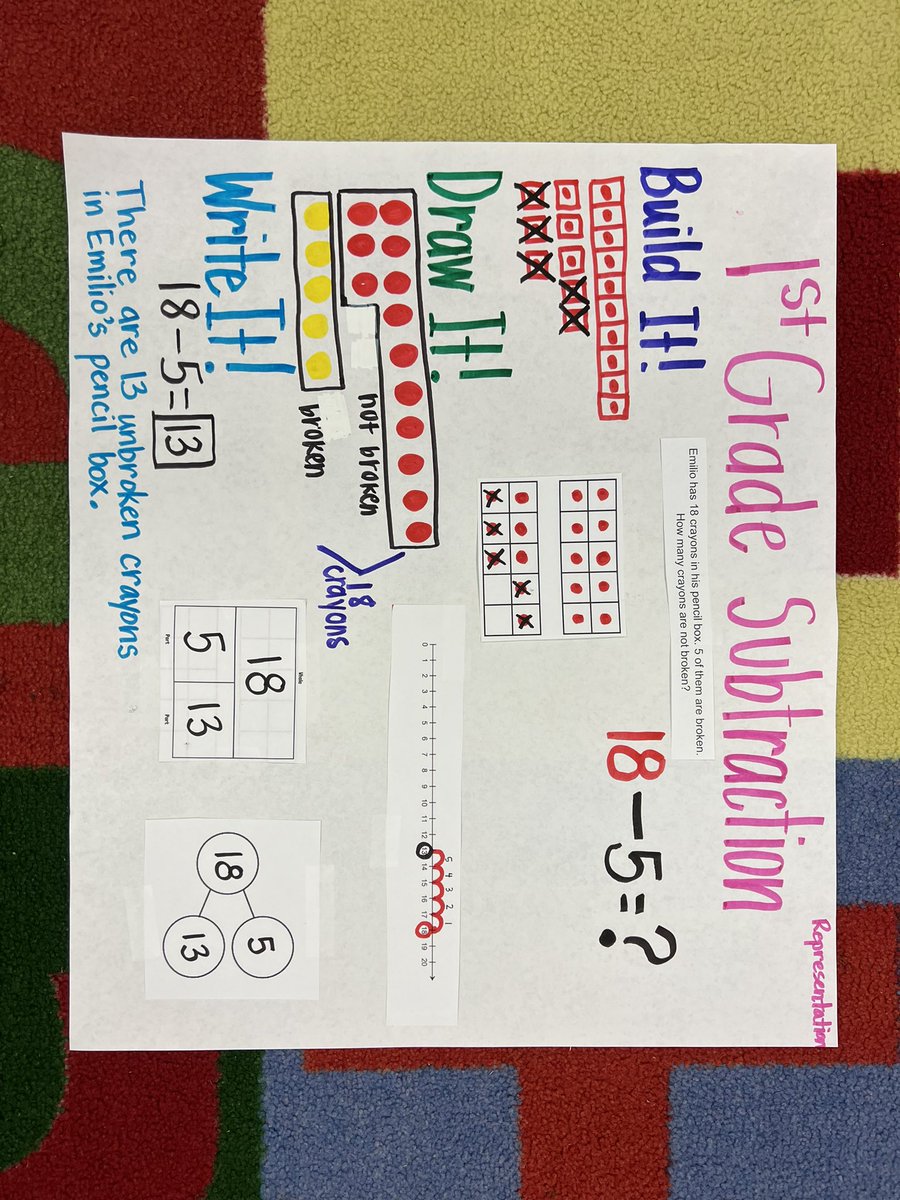 Representation
1st Grade Subtraction
Emilio has 18 crayons in his pencil box. 5 of them are broken.
How many crayons are not broken?
Build It!
18 - 5 = ?
Draw It!
5 4 3 2 1
0 1 2 3 4 5 6 7 8 9 10 11 12 13 14 15 16 17 18 19 20
not broken
broken
18
crayons
Write It!
18 - 5 = 13
There are 13 unbroken crayons
in Emilio's pencil box.
Whole
18
5 13
Part Part
18
5
13